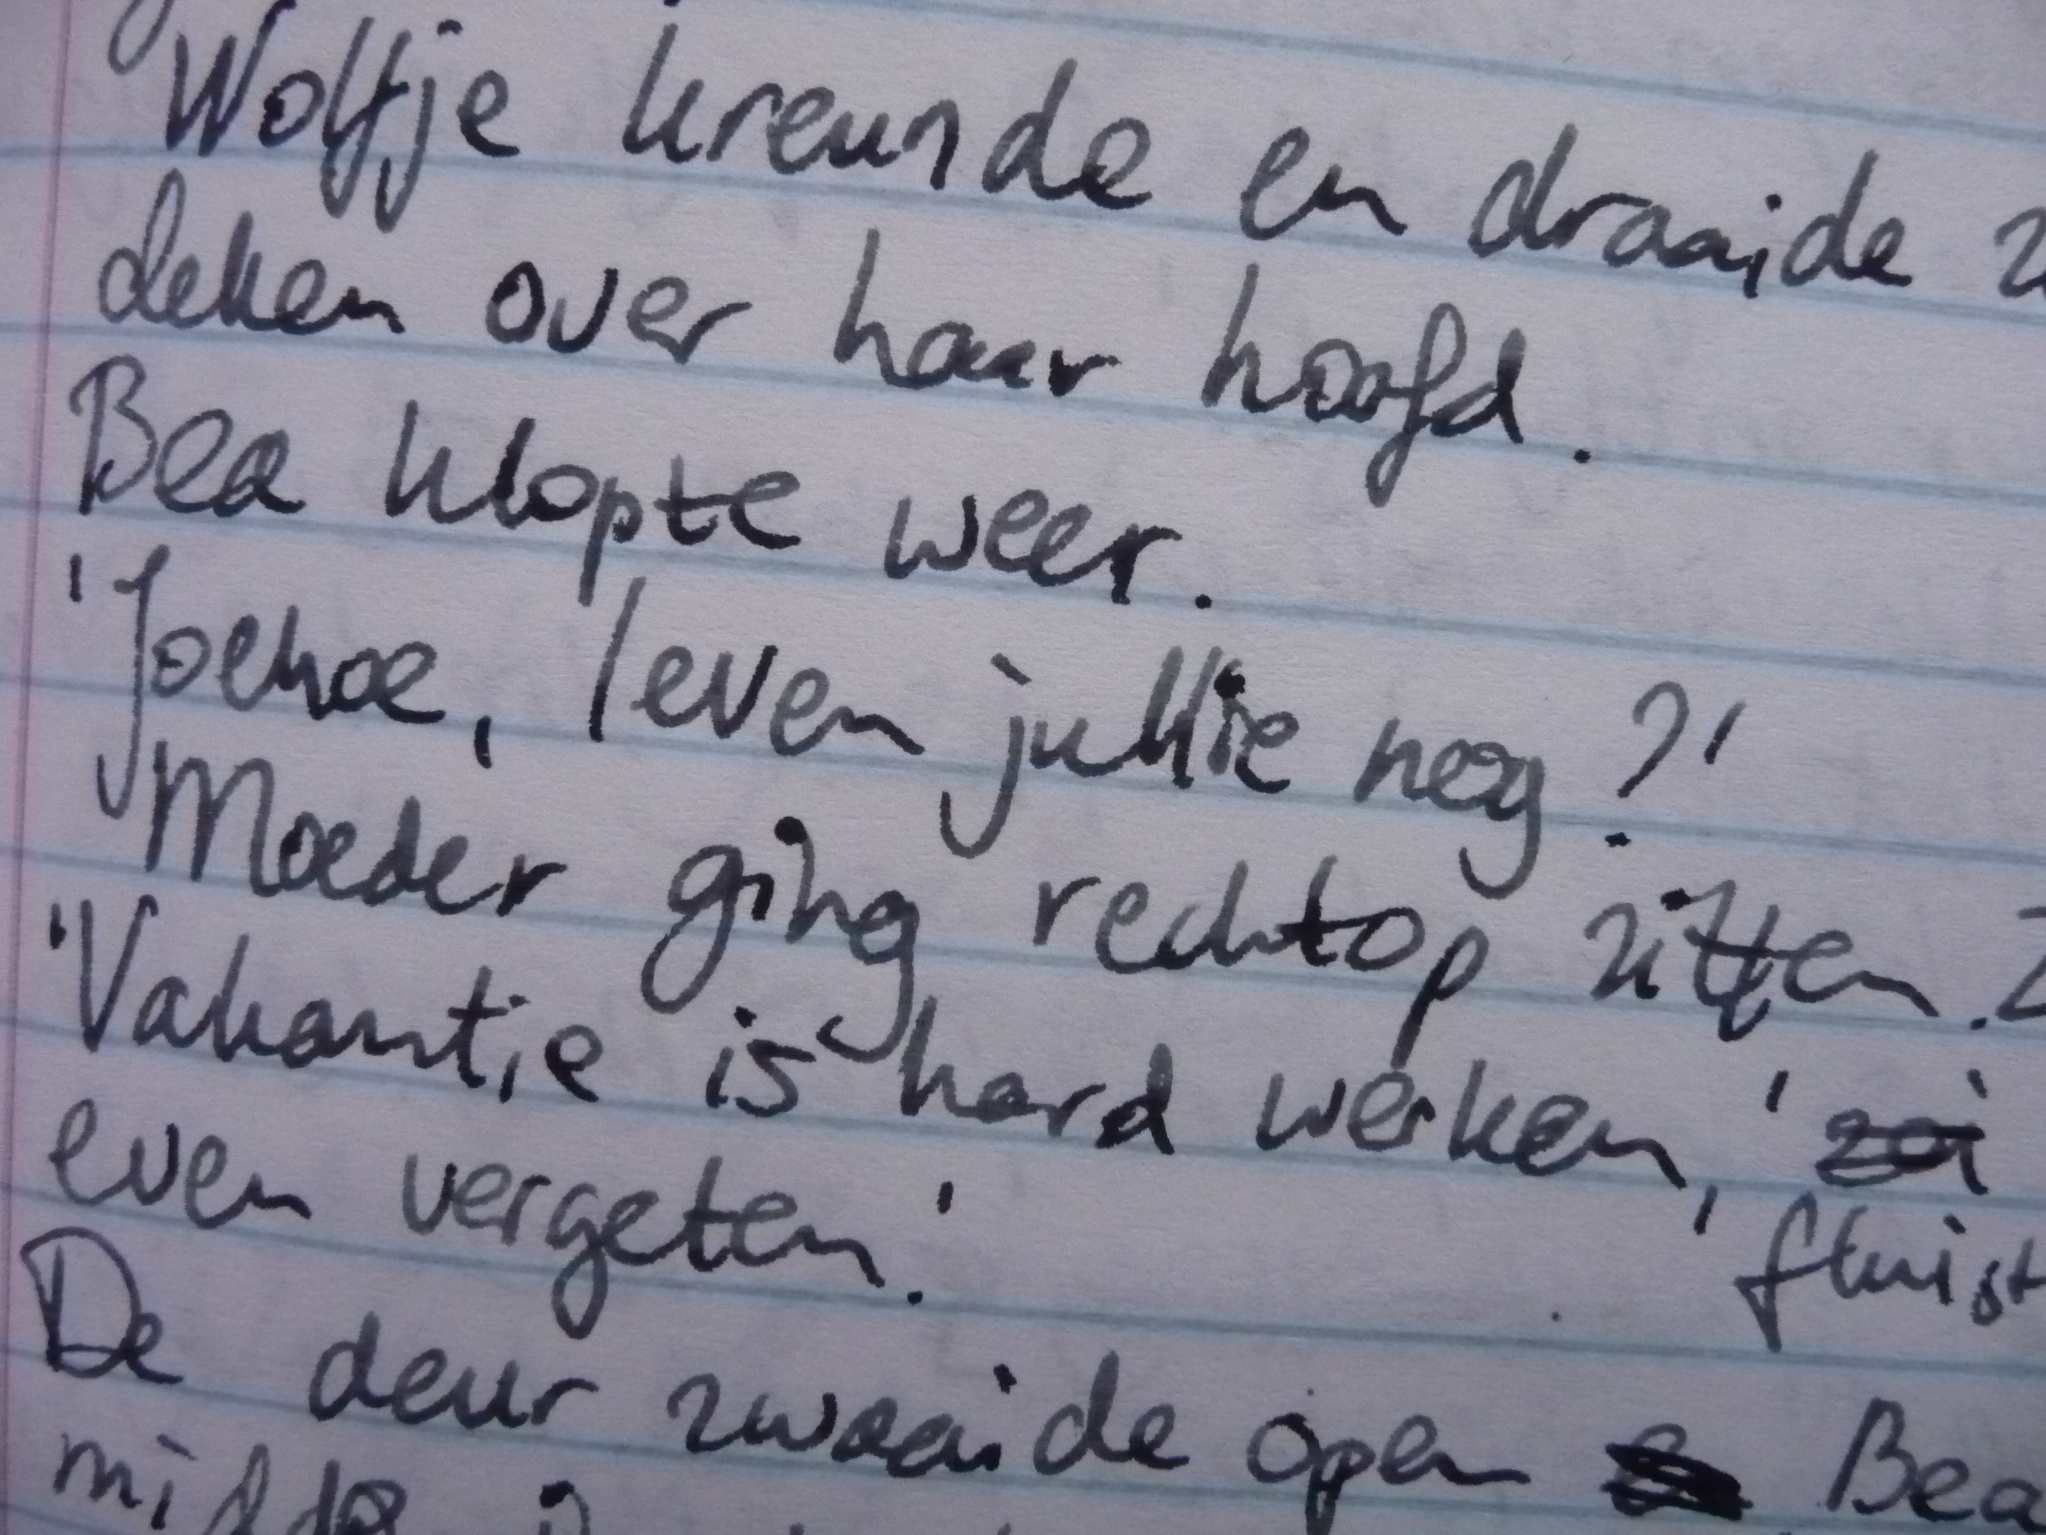 Wolfje kreunde en draaide
deken over haar hoofd.
Bea klopte weer.
'Joehoe, leven jullie nog?'
Moeder ging rechtop zitten.
'Vakantie is hard werken,' zei
even vergeten.' fluist
De deur zwaaide open Bea